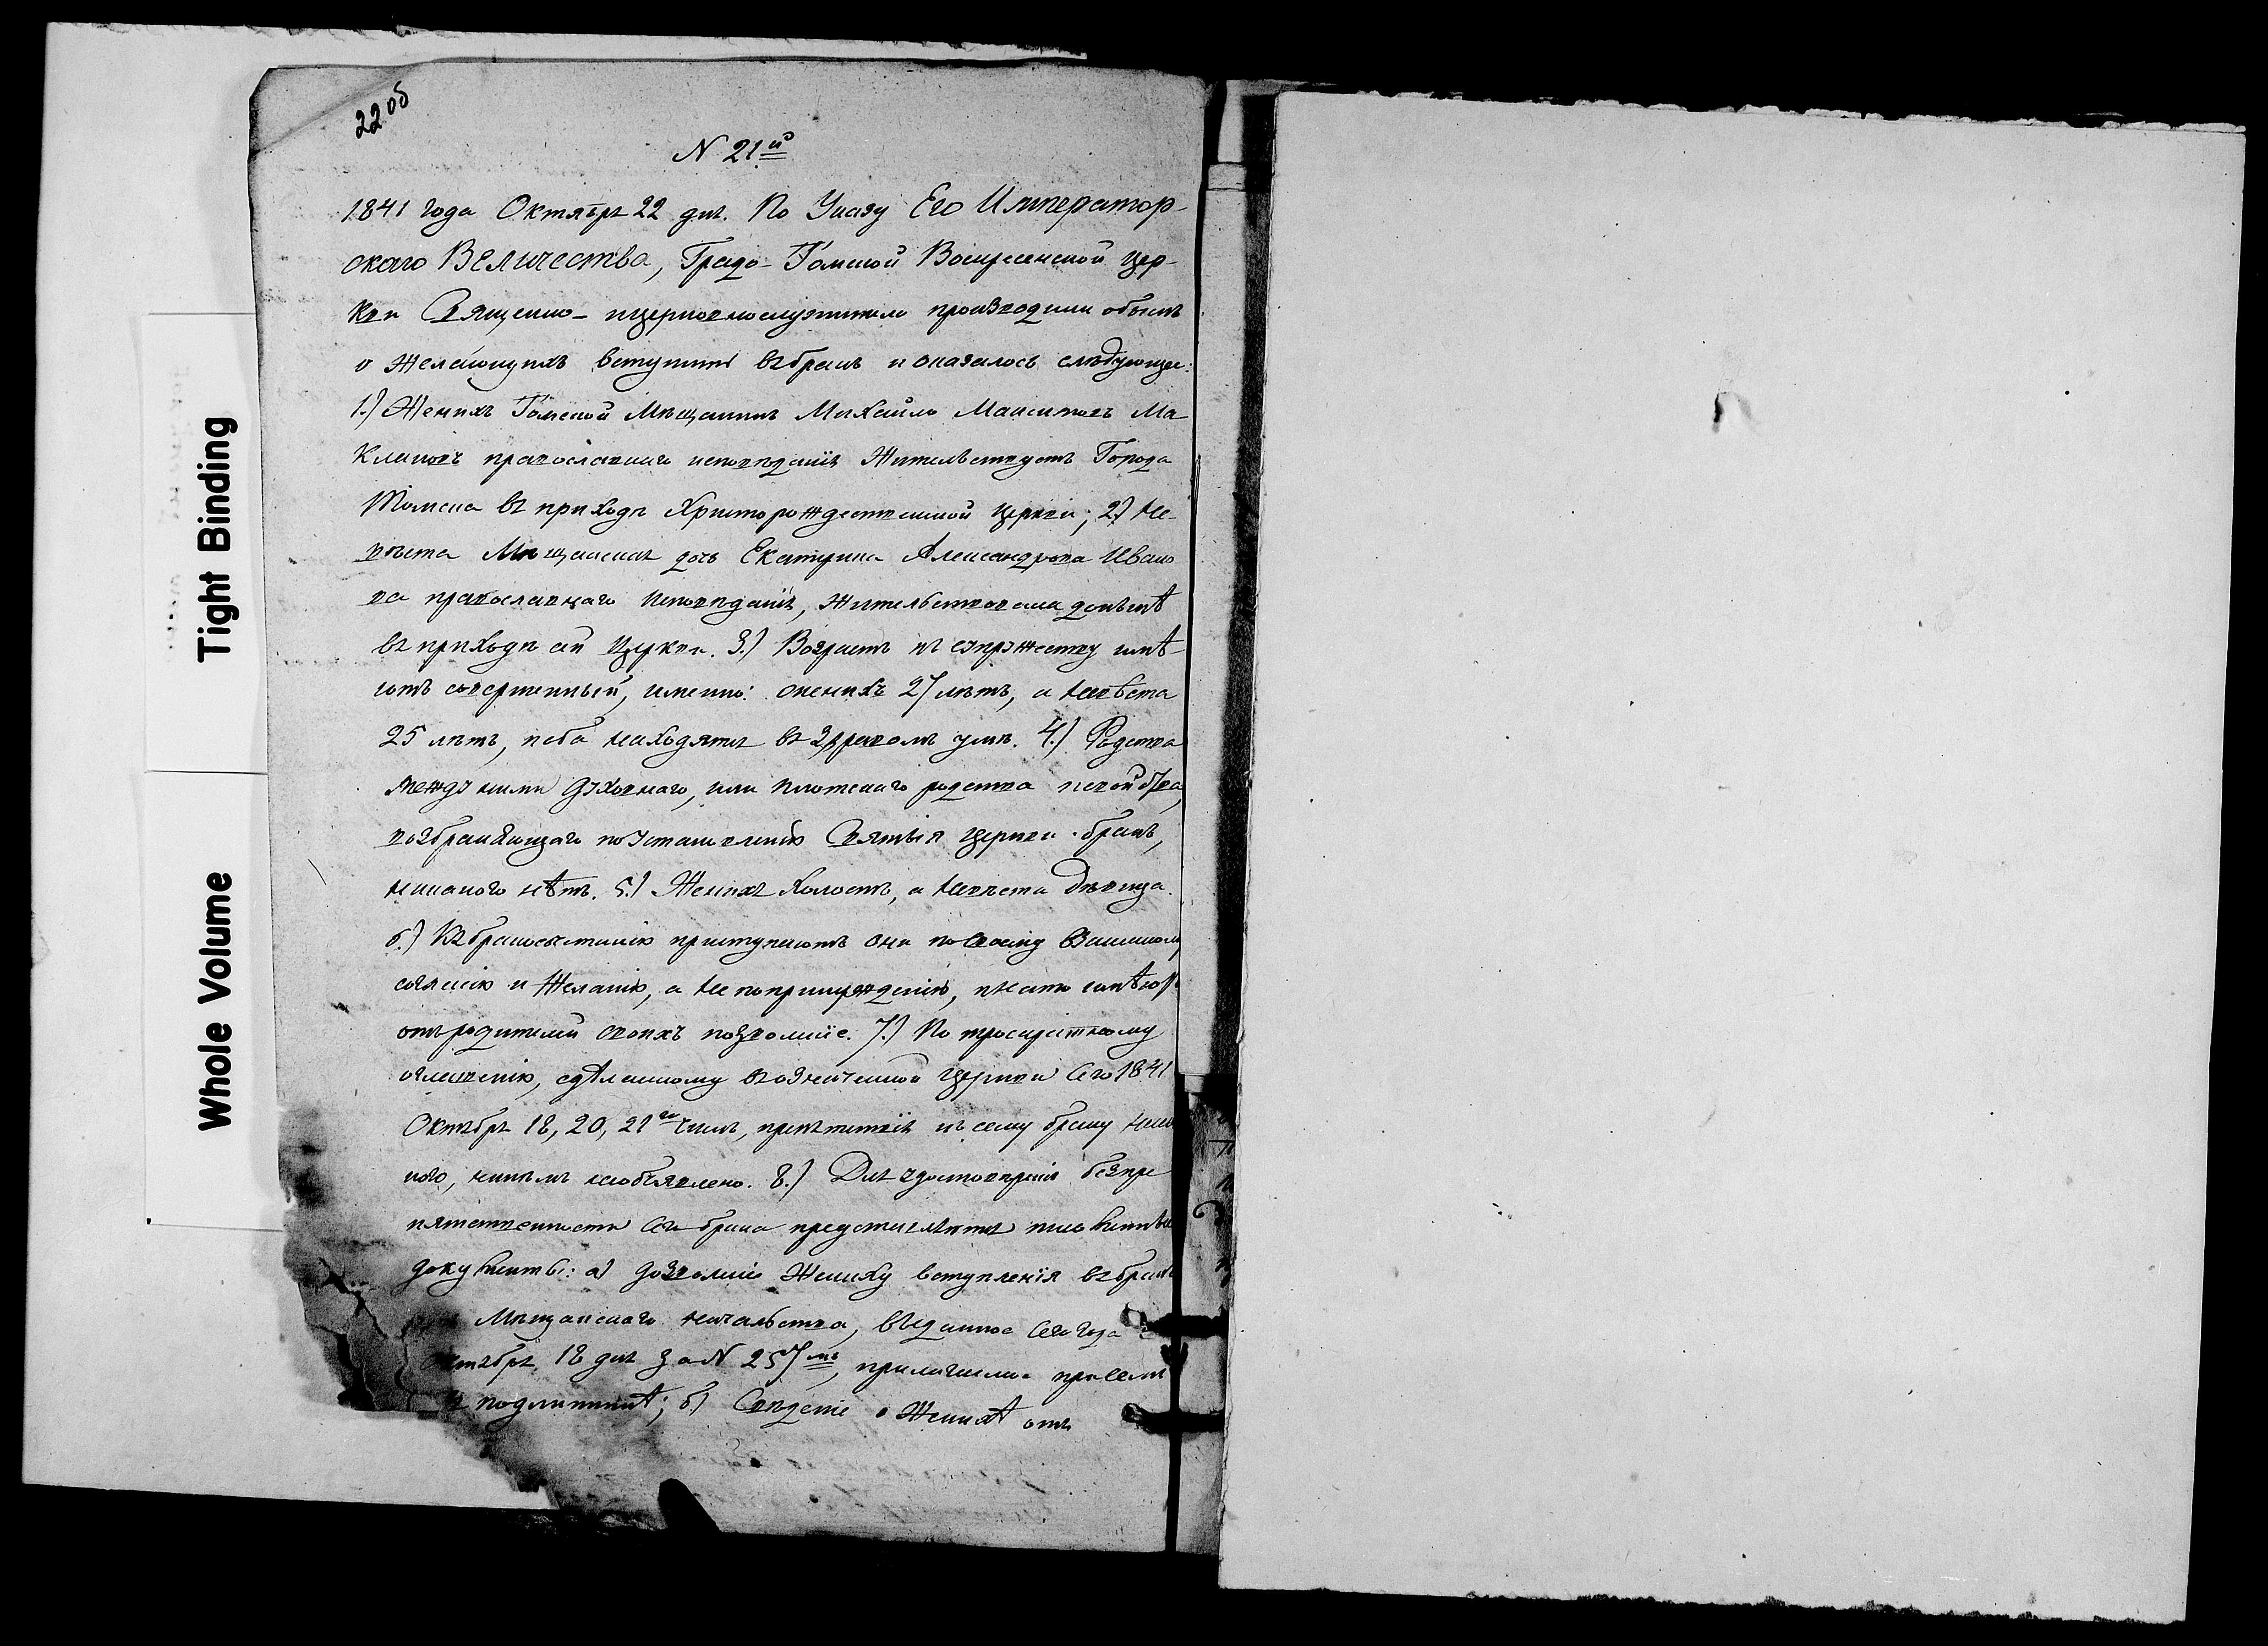 22 об
N 21й
1841 года Октября 22 дня. По Указу Его Император-
скаго Величества, Градо-Томской Воскресенской Цер-
кви Священно- ицерковнослужители производили обыскъ
о желающихъ вступить въ бракъ и оказалось слѣдующее:
1.) Женихъ Томской Мѣщанинъ Михайло Ма
клаковъ православнаго исповѣданія жительствуетъ Города
Томска въ приходѣ Христорождественской церкви; 2) Не-
вѣста Мѣщанская дочь Екатерина Александрова Ивано
ва православнаго исповѣданія, жительствовала донынѣ
въ приходѣ сей Церкви. 3.) Возрастъ къ супружеству имѣ-
ютъ совершенный, именно: женихъ 27 лѣтъ, а невѣста
25 лѣтъ, и оба находятся въ здравомъ умѣ. 4.) Родства
между ними духовнаго, или плотскаго родства и свойства,
возбраняющаго по установленію Святыя Церкви бракъ,
никакого нѣтъ. 5.) Женихъ холостъ, а невѣста дѣвица.
6.) Къ бракосочетанію приступаютъ они по своему взаимному
согласію и желанію, а не по принужденію, и на то имѣютъ
отъ родителей своихъ позволеніе. 7.) По троекратному
оглашенію, сдѣланному въ означенной Церкви сего 1841
Октября 18, 20, 21го числъ, препятствія къ сему браку ника
кого, никѣмъ необъявлено. 8.) Для удостовѣренія безпре
пятственности сего брака представляются письменные
документы: а) дозволеніе Жениху вступленія въ бракъ
Мѣщанскаго начальства, выданное сего года
Октября 18 дня за N 257мъ, прилагаемое при семъ
въ подлинникѣ; б) Свѣденіе о Женихѣ отъ
Tight Binding
Whole Volume